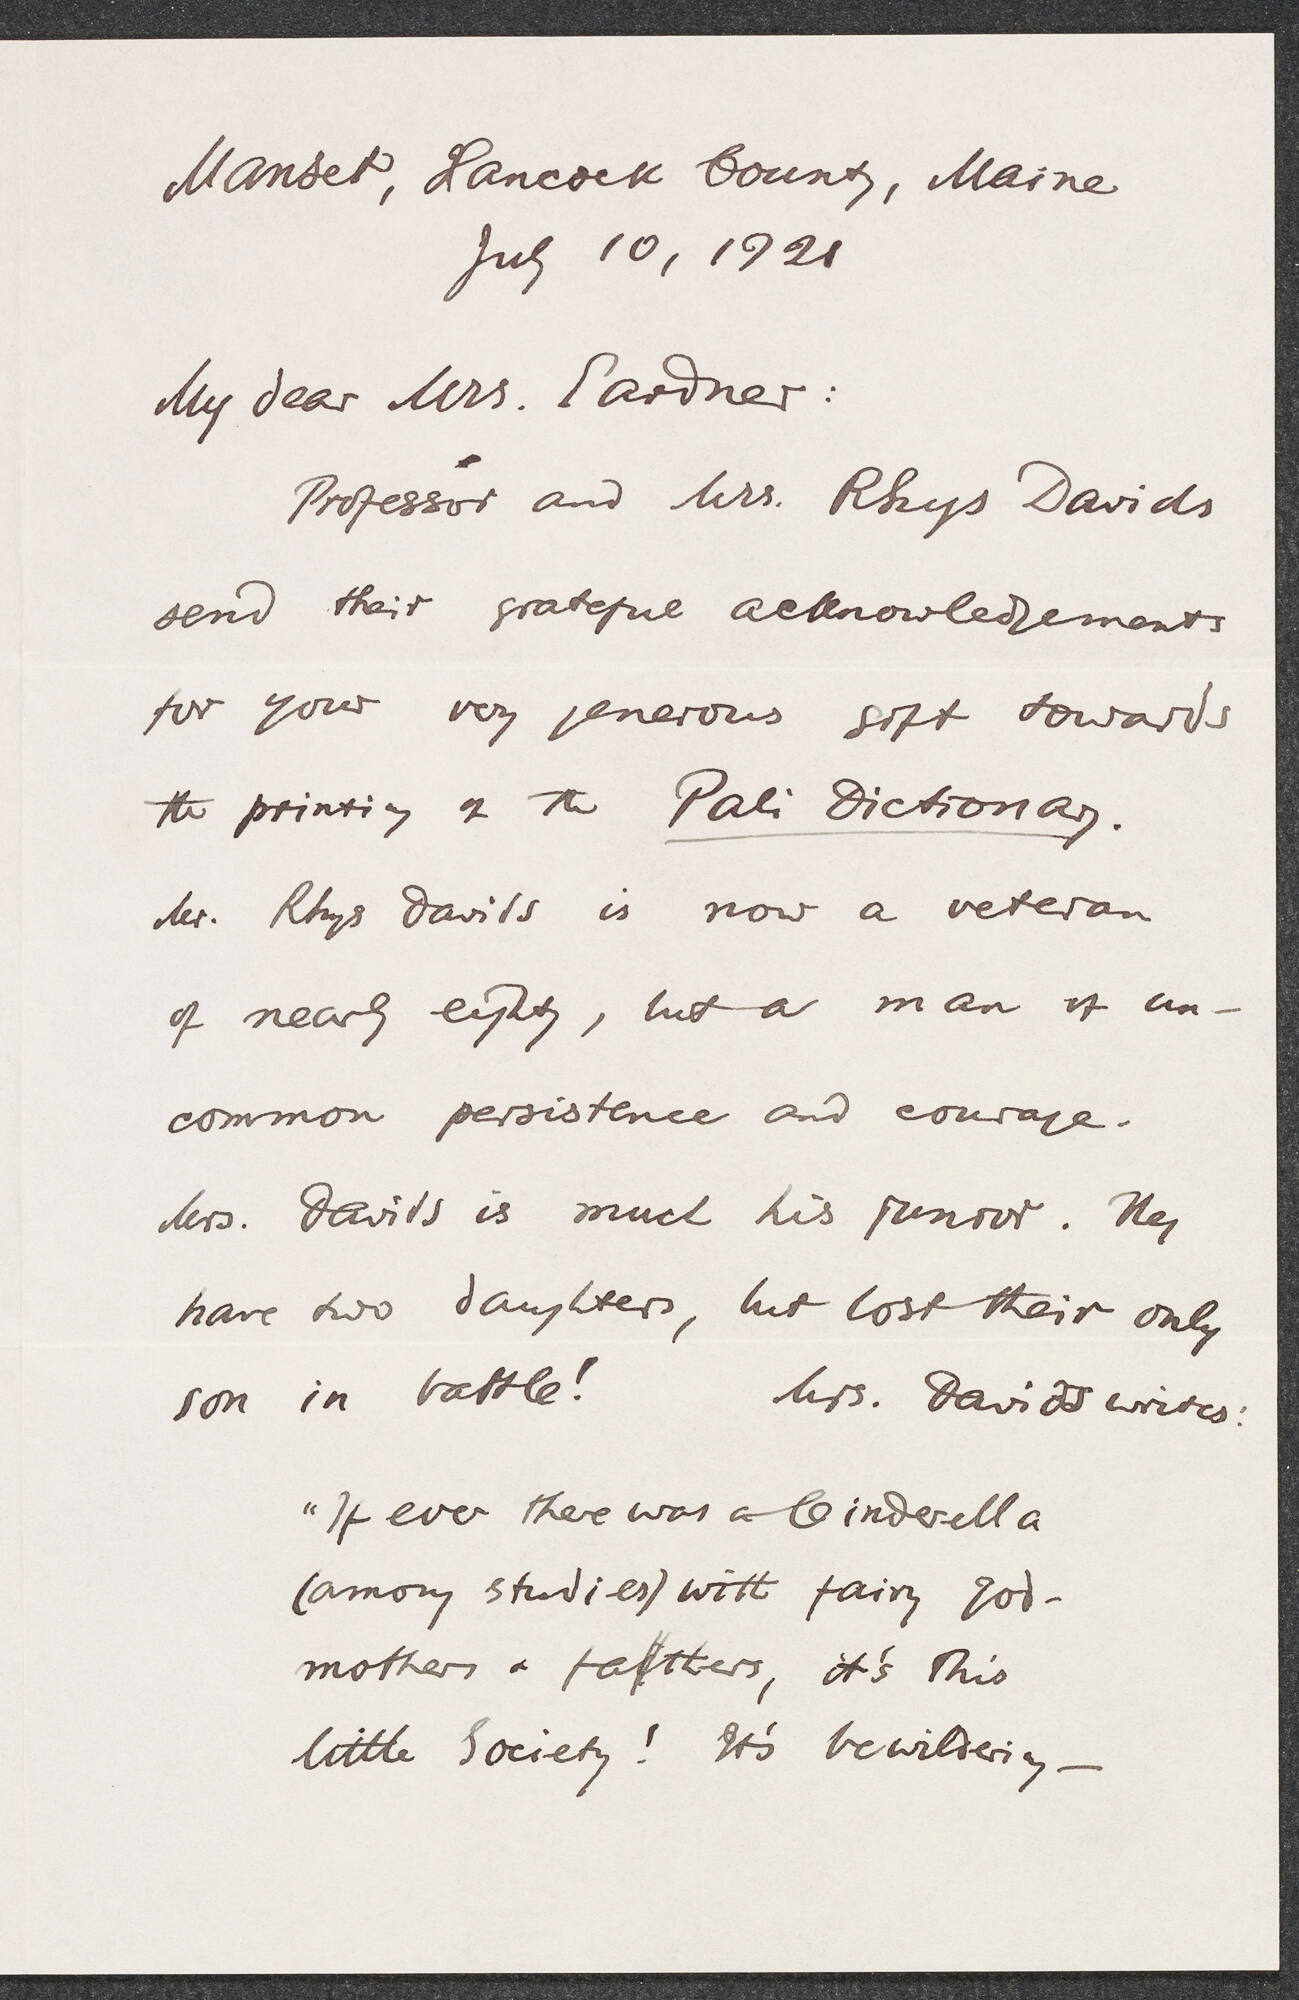 Manset, Hancock County, Maine
July 10, 1921
My dear Mrs. Gardner:
Professor and Mrs. Rhys Davids
send their grateful acknowledgements
for your very generous gift towards
the printing of the Pali Dictionary.
Mr. Rhys Davids is now a veteran
of nearly eighty, but a man of un-
common persistence and courage.
Mrs. Davids is much his junior. They
have two daughters, but lost their only
son in battle! Mrs. Davids writes:
"If ever there was a Cinderella
(among studies) with fairy god-
mothers & fathers, it's this
little Society! It's bewildering—